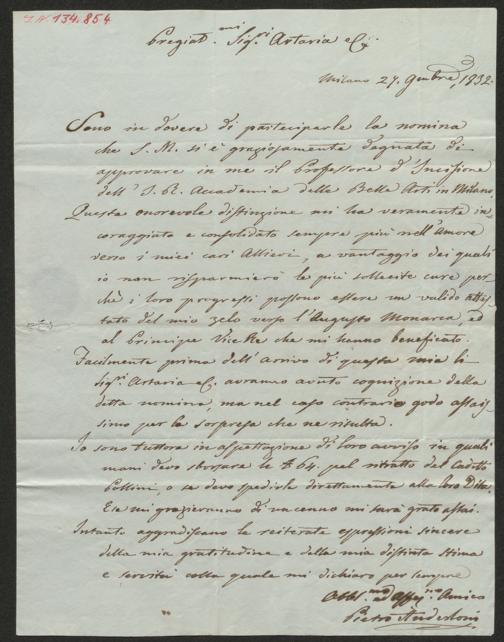 I.N. 134.854
Pregiat.mi Sig.ri Artaria e C.
Milano 27. 9mbre, 1832.
Sono in dovere di parteciparle la nomina
che S. M. si è graziosamente degnata di
approvare in me il Professore d'Incisione
dell' I. R. Accademia delle Belle Arti in Milano
Questa onorevole distinzione mi ha veramente in-
coraggiato e consolidato sempre più nell'Amore
verso i miei cari Allievi, a vantaggio dei quali
io non risparmierò le più sollecite cure per-
chè i loro progressi possono essere un valido attes-
tato del mio zelo verso l'Augusto Monarca, ed
al Principe ViceRe che mi hanno beneficato.
Facilmente prima dell'arrivo di questa mia li
Sig.ri Artaria e C. avranno avuto cognizione della
detta nomina, ma nel caso contrario godo assais-
simo per la sorpresa che ne risulta.
Io sono tuttora in aspettazione di loro avviso in quali
mani devo sborsare le 64. pel ritratto del
Pollini, o se devo spedirle direttamente alla loro Ditta.
Ese mi grazieranno di un cenno mi sarà grato assai.
Intanto aggradiscano le reiterate espressioni sincere
della mia gratitudine e della mia distinta stima
e servitù colla quale mi dichiaro per sempre
Obbl.mo ed Affez.mo Amico
Pietro Anderloni